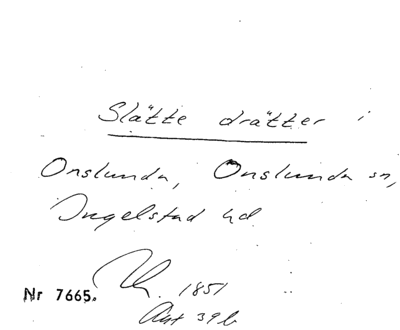 Slätte drätter i
Onslunda, Onslunda sn,
Ingelstad hd
Nr 7665. 1851
Akt 39b